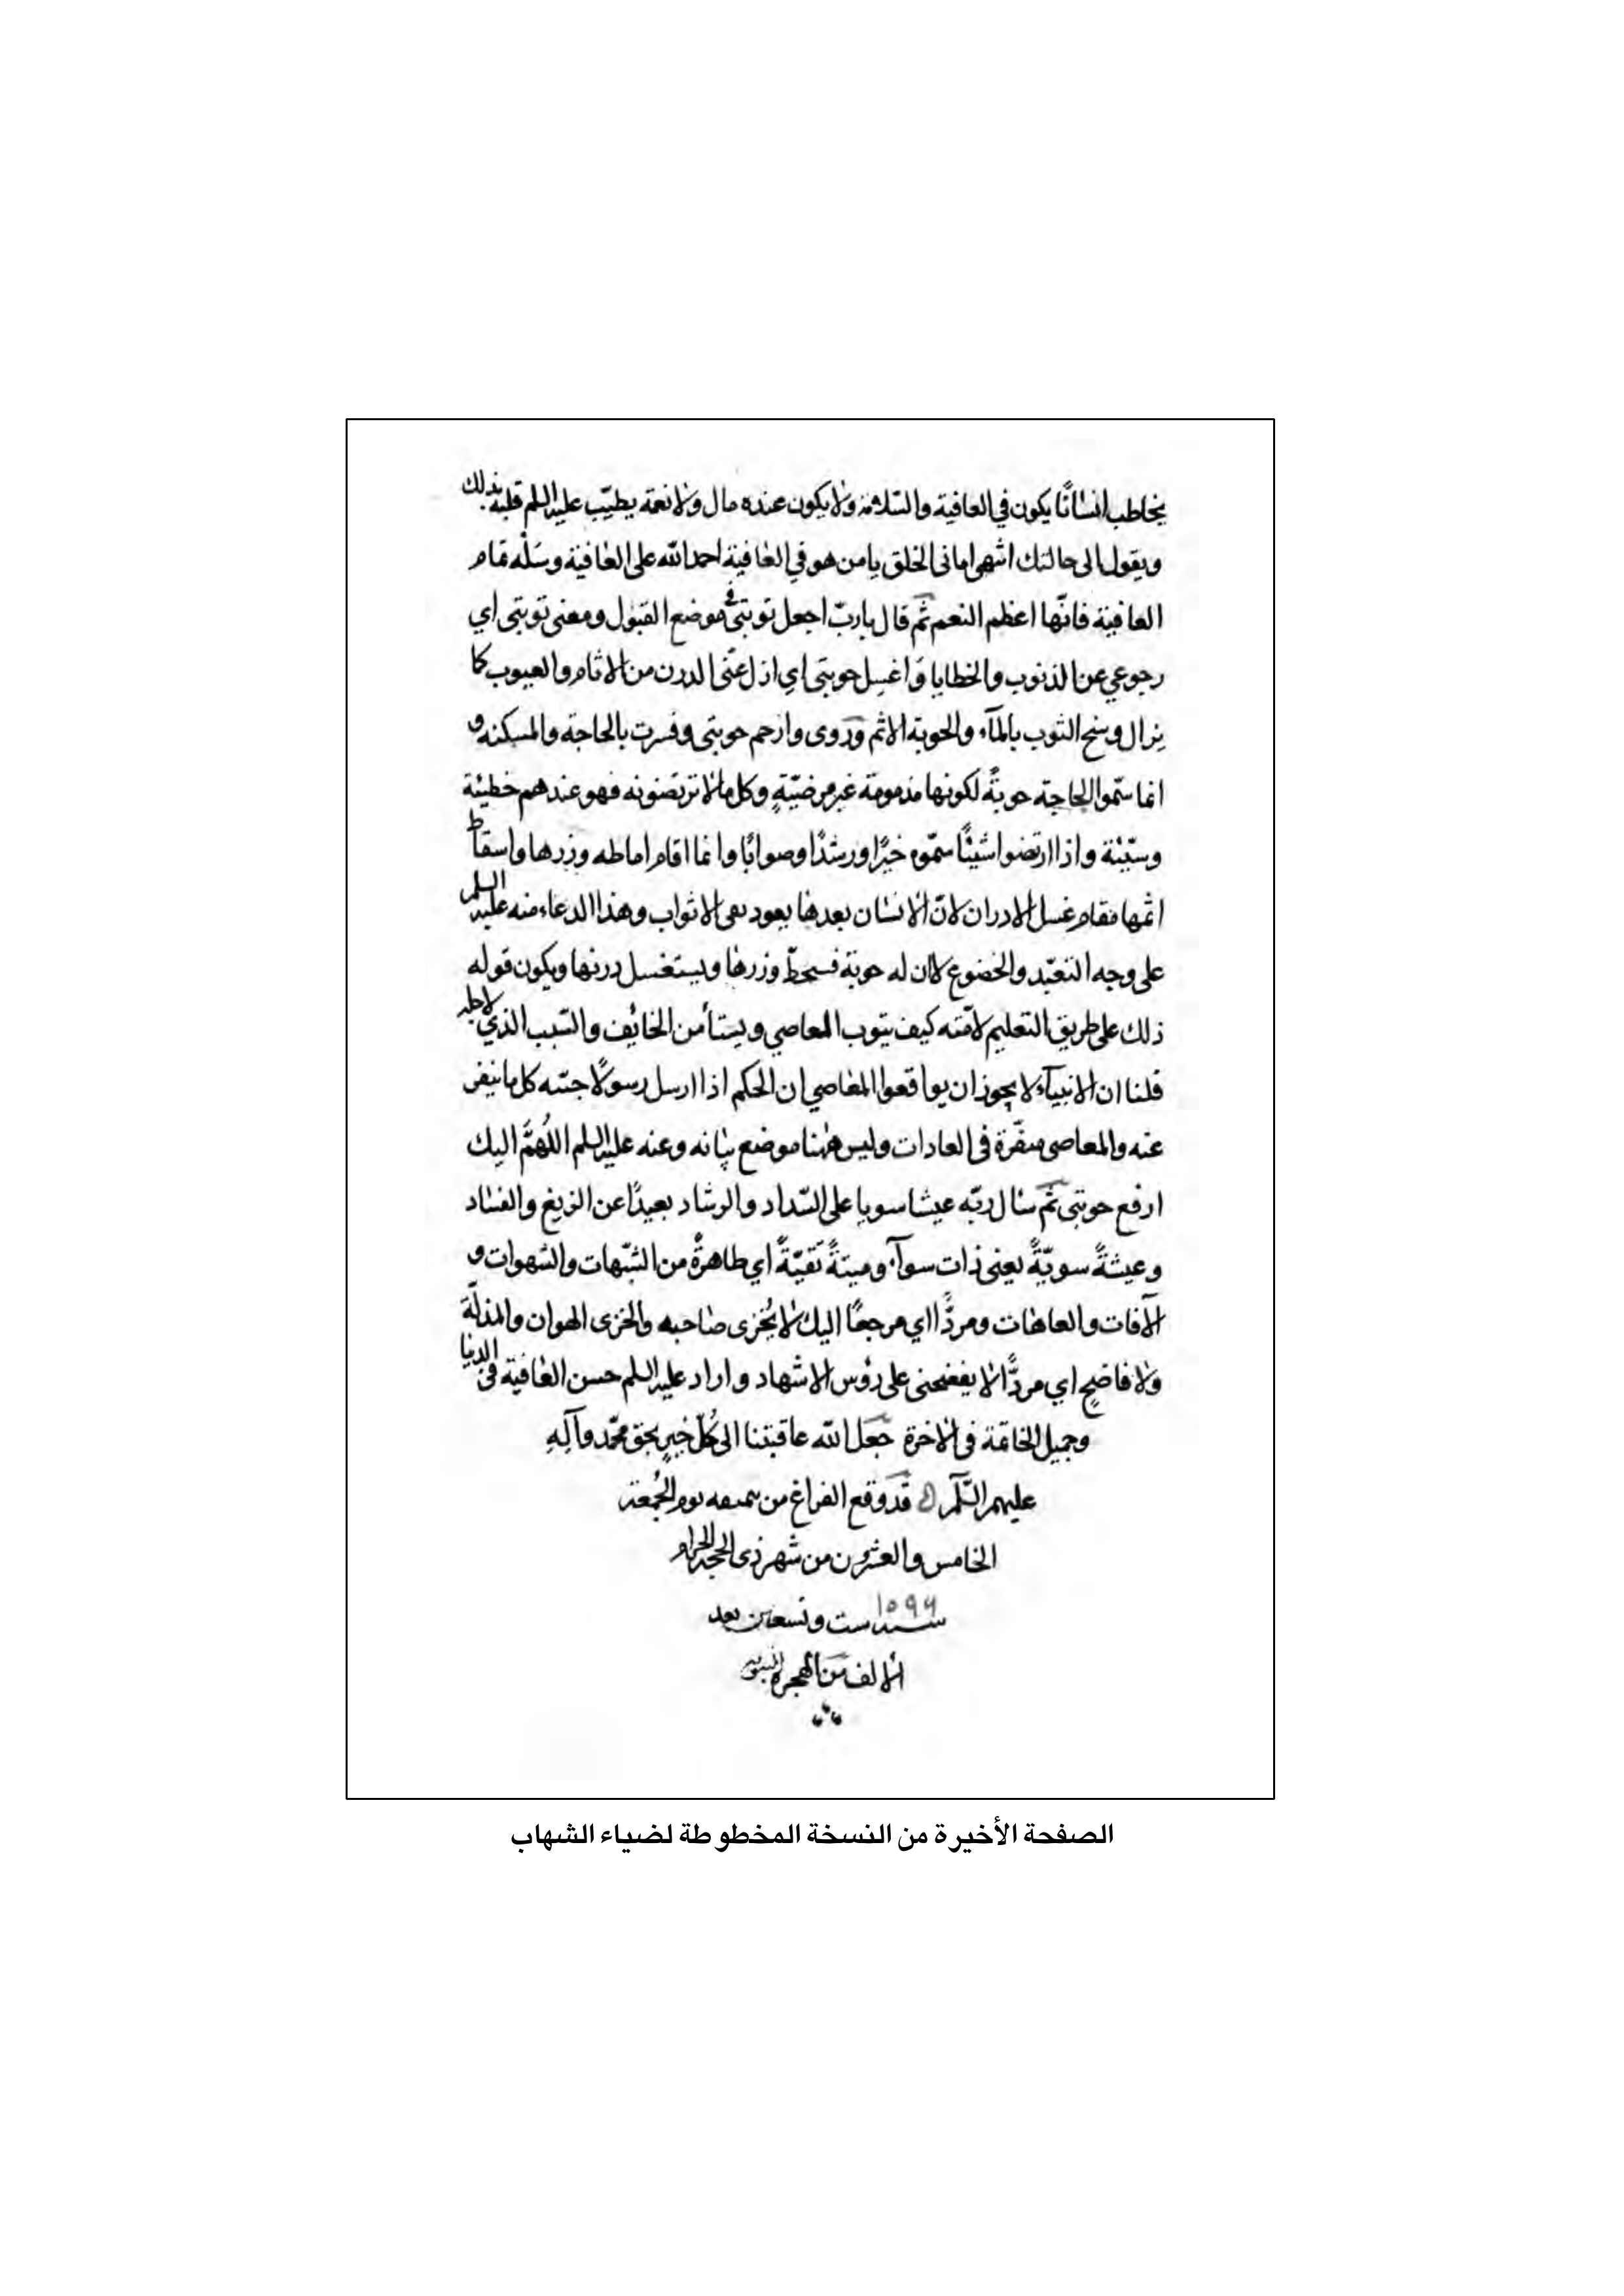 يخاطب انسانًا يكون في العافية والسّلامة ولا يكون عنده مال ولا نعمة يطيّب عليه السلم قلبه بذلك
ويقول الى حالتك اشهى امانى الخلق يا من هو في العافية احمد الله على العافية وسَلْه تمام
العافية فانّها اعظم النعم ثم قال يا ربّ اجعل توبتى في موضع القبول ومعنى توبتى اي
رجوعي عن الذنوب والخطايا وَاغسل حوبتى اي ازل عنّى الدرن من الاثام والعيوب كما
يزال وسخ الثوب بالمآء والحوبة الاثم وروى وارحم حوبتى وفسرت بالحاجة والمسكنه و
انما سمّوا الحاجة حوبةً لكونها مذمومة غير مرضيّةٍ وكل ما لا ترتضونه فهو عندهم خطيئة
وسيّئة واذا ارتضوا شيئًا سمّوه خيرًا ورشدًا وصوابًا وانما اقام اماطه وزرها واسقاط
اثمها مقام غسل الادران لانّ الانسان بعدها يعود نقى الاثواب وهذا الدعاء منه عليه السلم
على وجه التعبّد والخضوع لا ان له حوبة فسحطّ وزرها ويستغسل درنها ويكون قوله
ذلك على طريق التعليم لامّته كيف يتوب المعاصي ويستأمن الخائف والسّبب الذي لاجله
قلنا ان الانبيآء لا يجوز ان يواقعوا المعاصي ان الحكم اذا ارسل رسولًا جنّبه كل ما ينفر
عنه والمعاصى منفّرة فى العادات وليس ههنا موضع بيانه وعنه عليه السلم اللهُمَّ اليك
ارفع حوبتى ثم سال ربّه عيشا سويا على السّداد والرشاد بعيدًا عن الزيغ والفساد
وعيشةً سويّةً يعنى ذات سوآء وميتةً نَقيّةً اي طاهرةً من الشبّهات والشهوات و
الآفات والعاهات ومردًّا اي مرجعًا اليك لا يُخزى صاحبه والخزى الهوان والمذلّة
ولا فاضحٍ اي مردًّا لا يفضحنى على رؤس الاشهاد واراد عليه السلم حسن العافية فى الدنيا
وجميل الخاتمة فى الاخرة جعل الله عاقبتنا الى كُلّ خيرٍ بحق محمّد وآلِهِ
عليهم السّلم قد وقع الفراغ من يوم الجُمعة
الخامس والعشرين من شهر ذى الحجة الحرام
۱۰۹۶
سنه ست وتسعين بعد
الالف من الهجرة النبويه
الصفحة الأخيرة من النسخة المخطوطة لضياء الشهاب